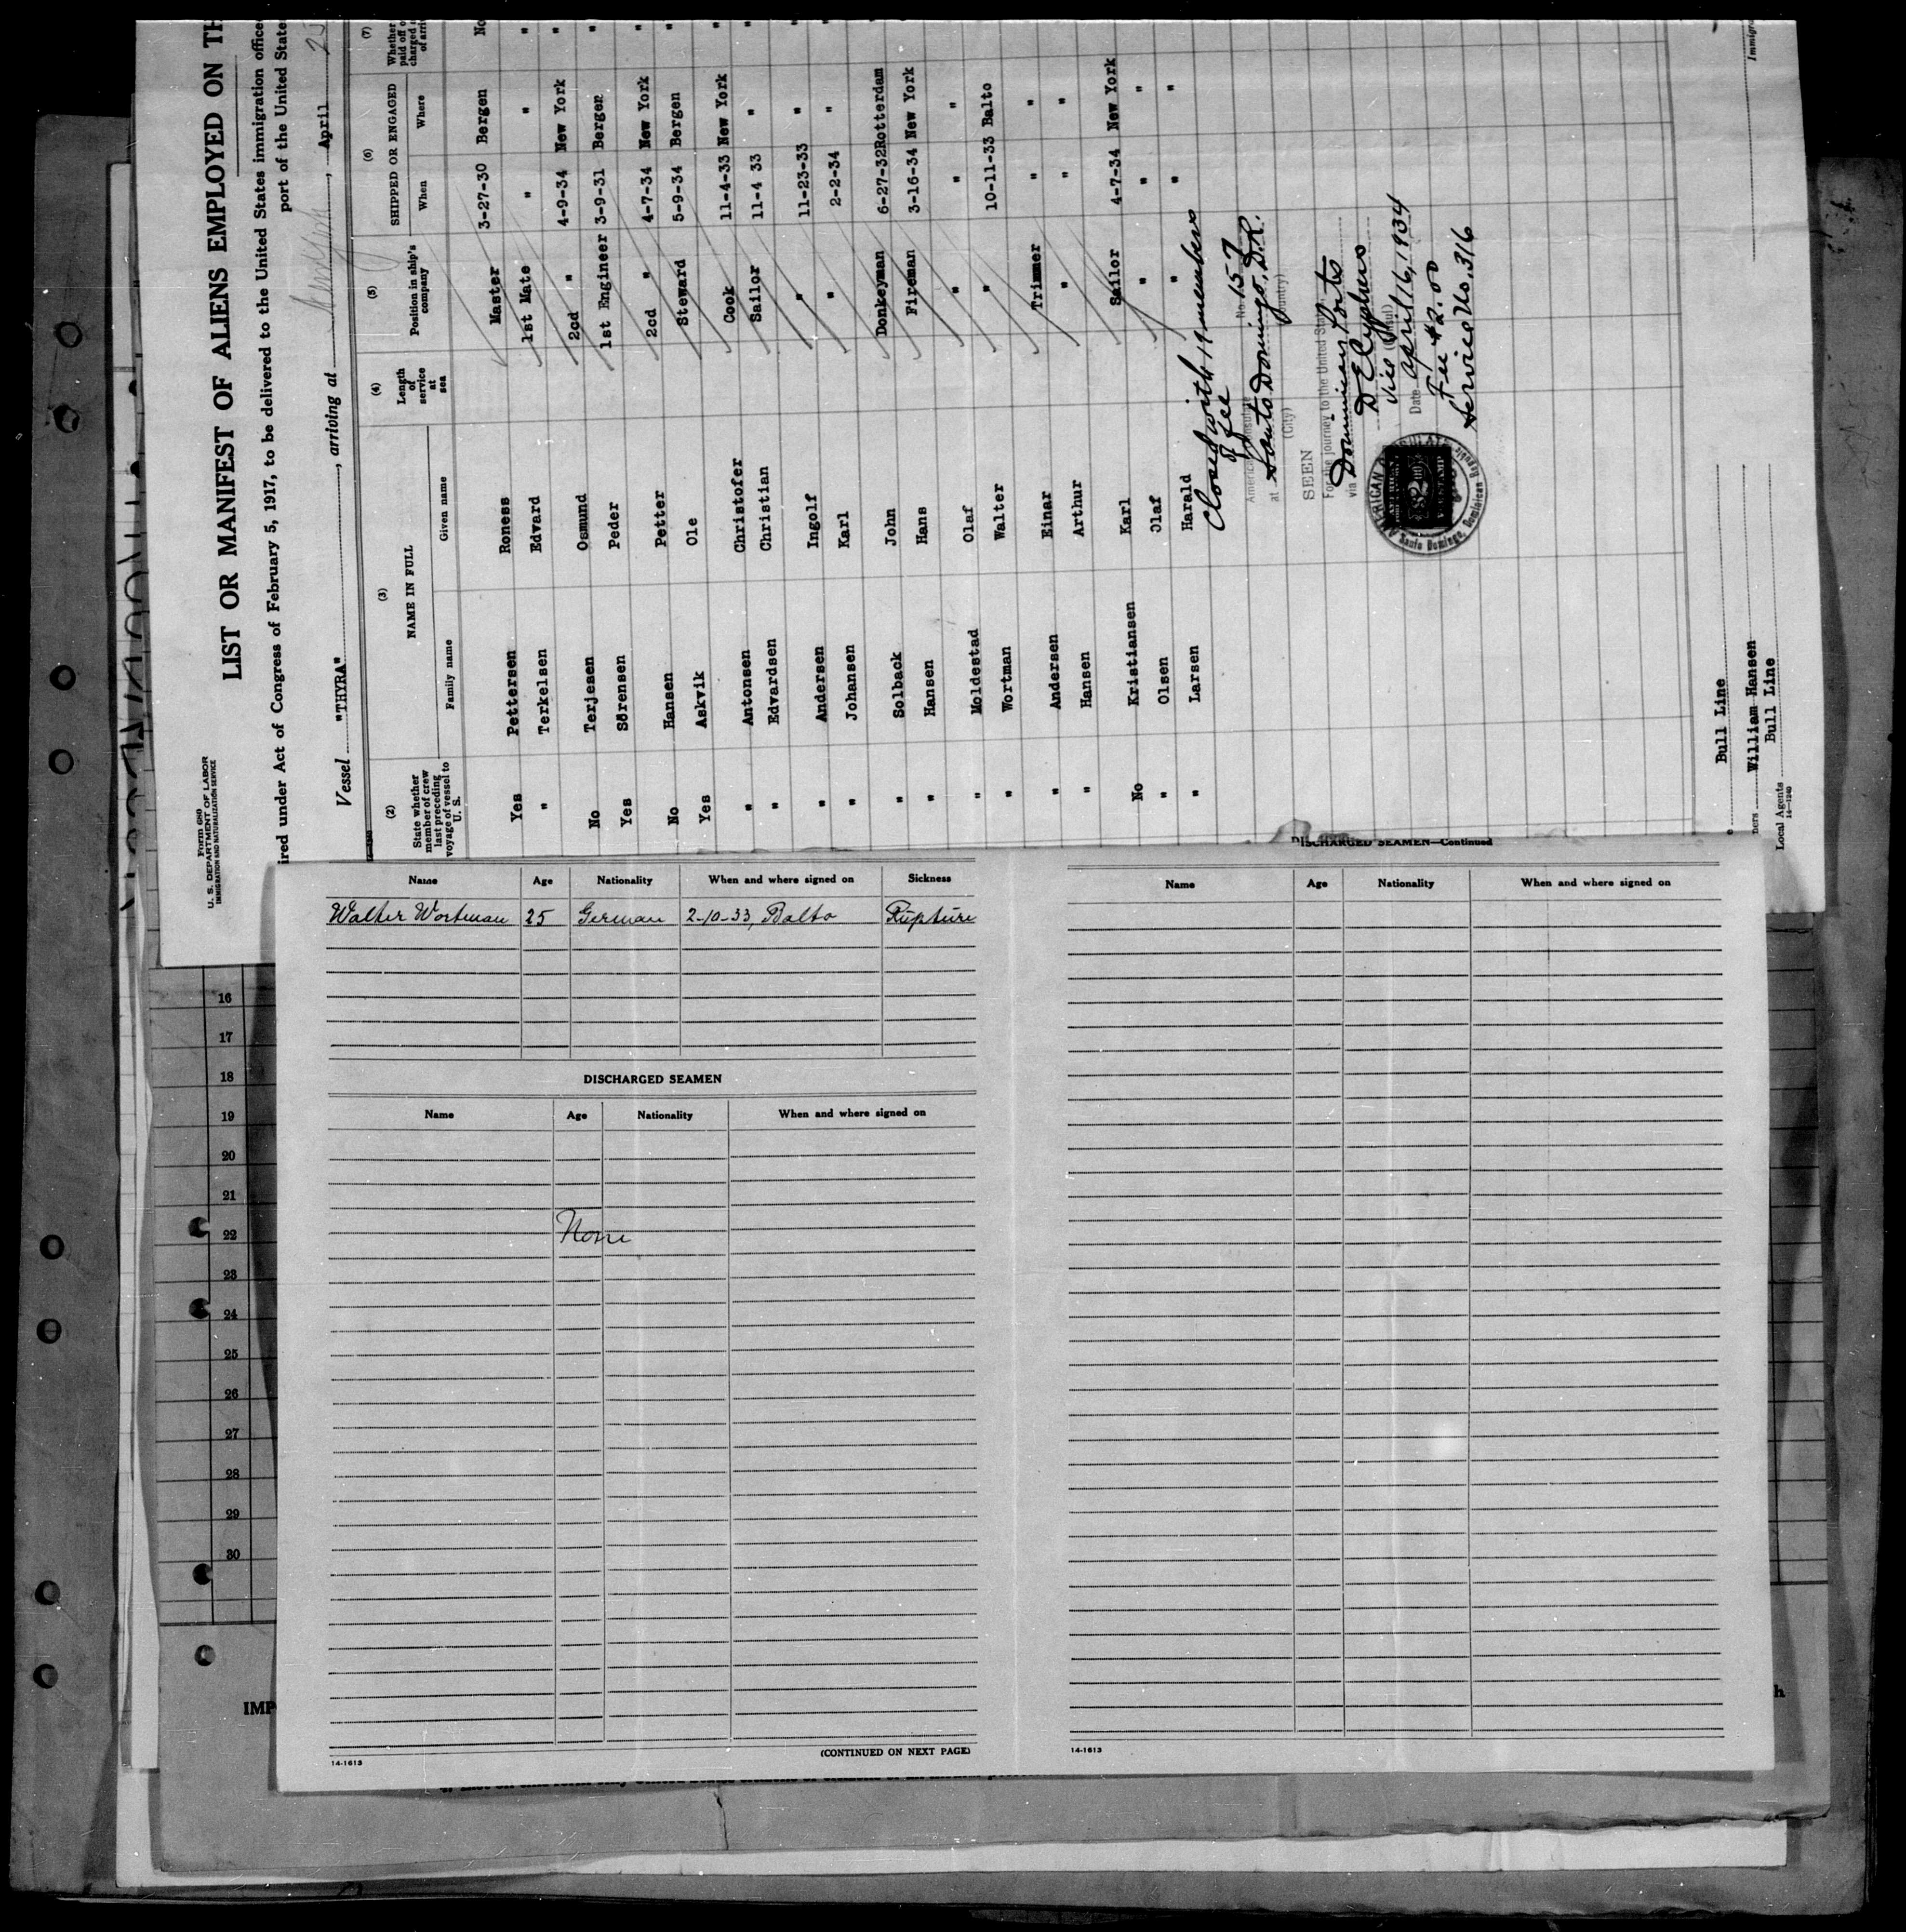 Form 680
U. S. DEPARTMENT OF LABOR
IMMIGRATION AND NATURALIZATION SERVICE
LIST OR MANIFEST OF ALIENS EMPLOYED ON TH
ired under Act of Congress of February 5, 1917, to be delivered to the United States immigration office
port of the United State
Vessel "THYRA", arriving at , April 25
(2) (3) (4) (5) (6) (7)
State whether member of crew last preceding voyage of vessel to U. S.
NAME IN FULL
Family name Given name
Length of service at sea
Position in ship's company
SHIPPED OR ENGAGED
When Where
Whether paid off or charged of arri
Yes Pettersen Roness Master 3-27-30 Bergen No
" Terkelsen Edvard 1st Mate " " "
No Terjesen Osmund 2cd " 4-9-34 New York "
Yes Sörensen Peder 1st Enginer 3-9-31 Bergen "
No Hansen Petter 2cd " 4-7-34 New York "
Yes Askvik Ole Steward 5-9-34 Bergen "
" Antonsen Christofer Cook 11-4-33 New York "
" Edvardsen Christian Sailor 11-4 33 " "
" Andersen Ingolf " 11-23-33 "
" Johansen Karl " 2-2-34 "
" Solback John Donkeyman 6-27-32 Rotterdam
" Hansen Hans Fireman 3-16-34 New York
" Moldestad Olaf " " "
" Wortman Walter " 10-11-33 Balto
" Andersen Einar Trimmer " "
" Hansen Arthur " " "
No Kristiansen Karl Sailor 4-7-34 New York
" Olsen Olaf " " "
" Larsen Harald " " "
Closed with 19 members
of fee
American Consulate No. 157
at Santo Domingo, D.R.
(City) (Country)
SEEN
For the journey to the United States
via Dominican Ports
Vice (Consul)
Date April 16, 1934
Fee $2.00
Service No. 316
Santo Domingo, Dominican Republic
Bull Line
ners William Hansen
Bull Line
Local Agents
14—1240
Immigra
Name Age Nationality When and where signed on Sickness
Walter Wortman 25 German 2-10-33, Balto Rupture
DISCHARGED SEAMEN
Name Age Nationality When and where signed on
None
(CONTINUED ON NEXT PAGE)
14-1613
DISCHARGED SEAMEN—Continued
Name Age Nationality When and where signed on
14-1613
16
17
18
19
20
21
22
23
24
25
26
27
28
29
30
IMP
h